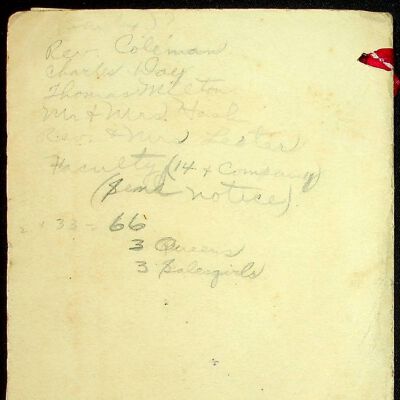 Rev. Coleman
Charles Day
Thomas Milton
Mr & Mrs. Hash
Rev. & Mrs Lester
Faculty (14 & Company)
(Send notice)
2 x 33 = 66
3 Queens
3 Salesgirls